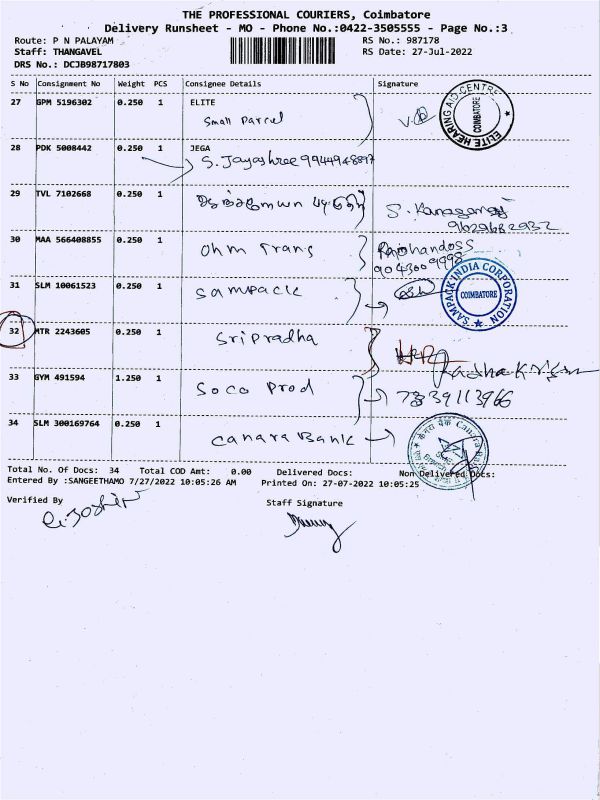 THE PROFESSIONAL COURIERS, Coimbatore
Delivery Runsheet - MO - Phone No.:0422-3505555 - Page No.:3
Route: P N PALAYAM RS No.: 987178
Staff: THANGAVEL RS Date: 27-Jul-2022
DRS No.: DCJB98717803
S No Consignment No Weight PCS Consignee Details Signature
27 GPM 5196302 0.250 1 ELITE
Small Parcel
ELITE HEARING AID CENTRE COIMBATORE
28 PDK 5008442 0.250 1 JEGA
S. Jayashree 9944948897
29 TVL 7102668 0.250 1
9629682932
30 MAA 566408855 0.250 1 Ohm Trans
9043009998
31 SLM 10061523 0.250 1 Sampack
SAMPACK INDIA CORPORATION COIMBATORE
32 MTR 2243605 0.250 1 Sri Pradha
33 GYM 491594 1.250 1 Soco Prod
34 SLM 300169764 0.250 1 Canara Bank
Total No. Of Docs: 34 Total COD Amt: 0.00 Delivered Docs: Non Delivered Docs:
Entered By :SANGEETHAMO 7/27/2022 10:05:26 AM Printed On: 27-07-2022 10:05:25
Verified By Staff Signature